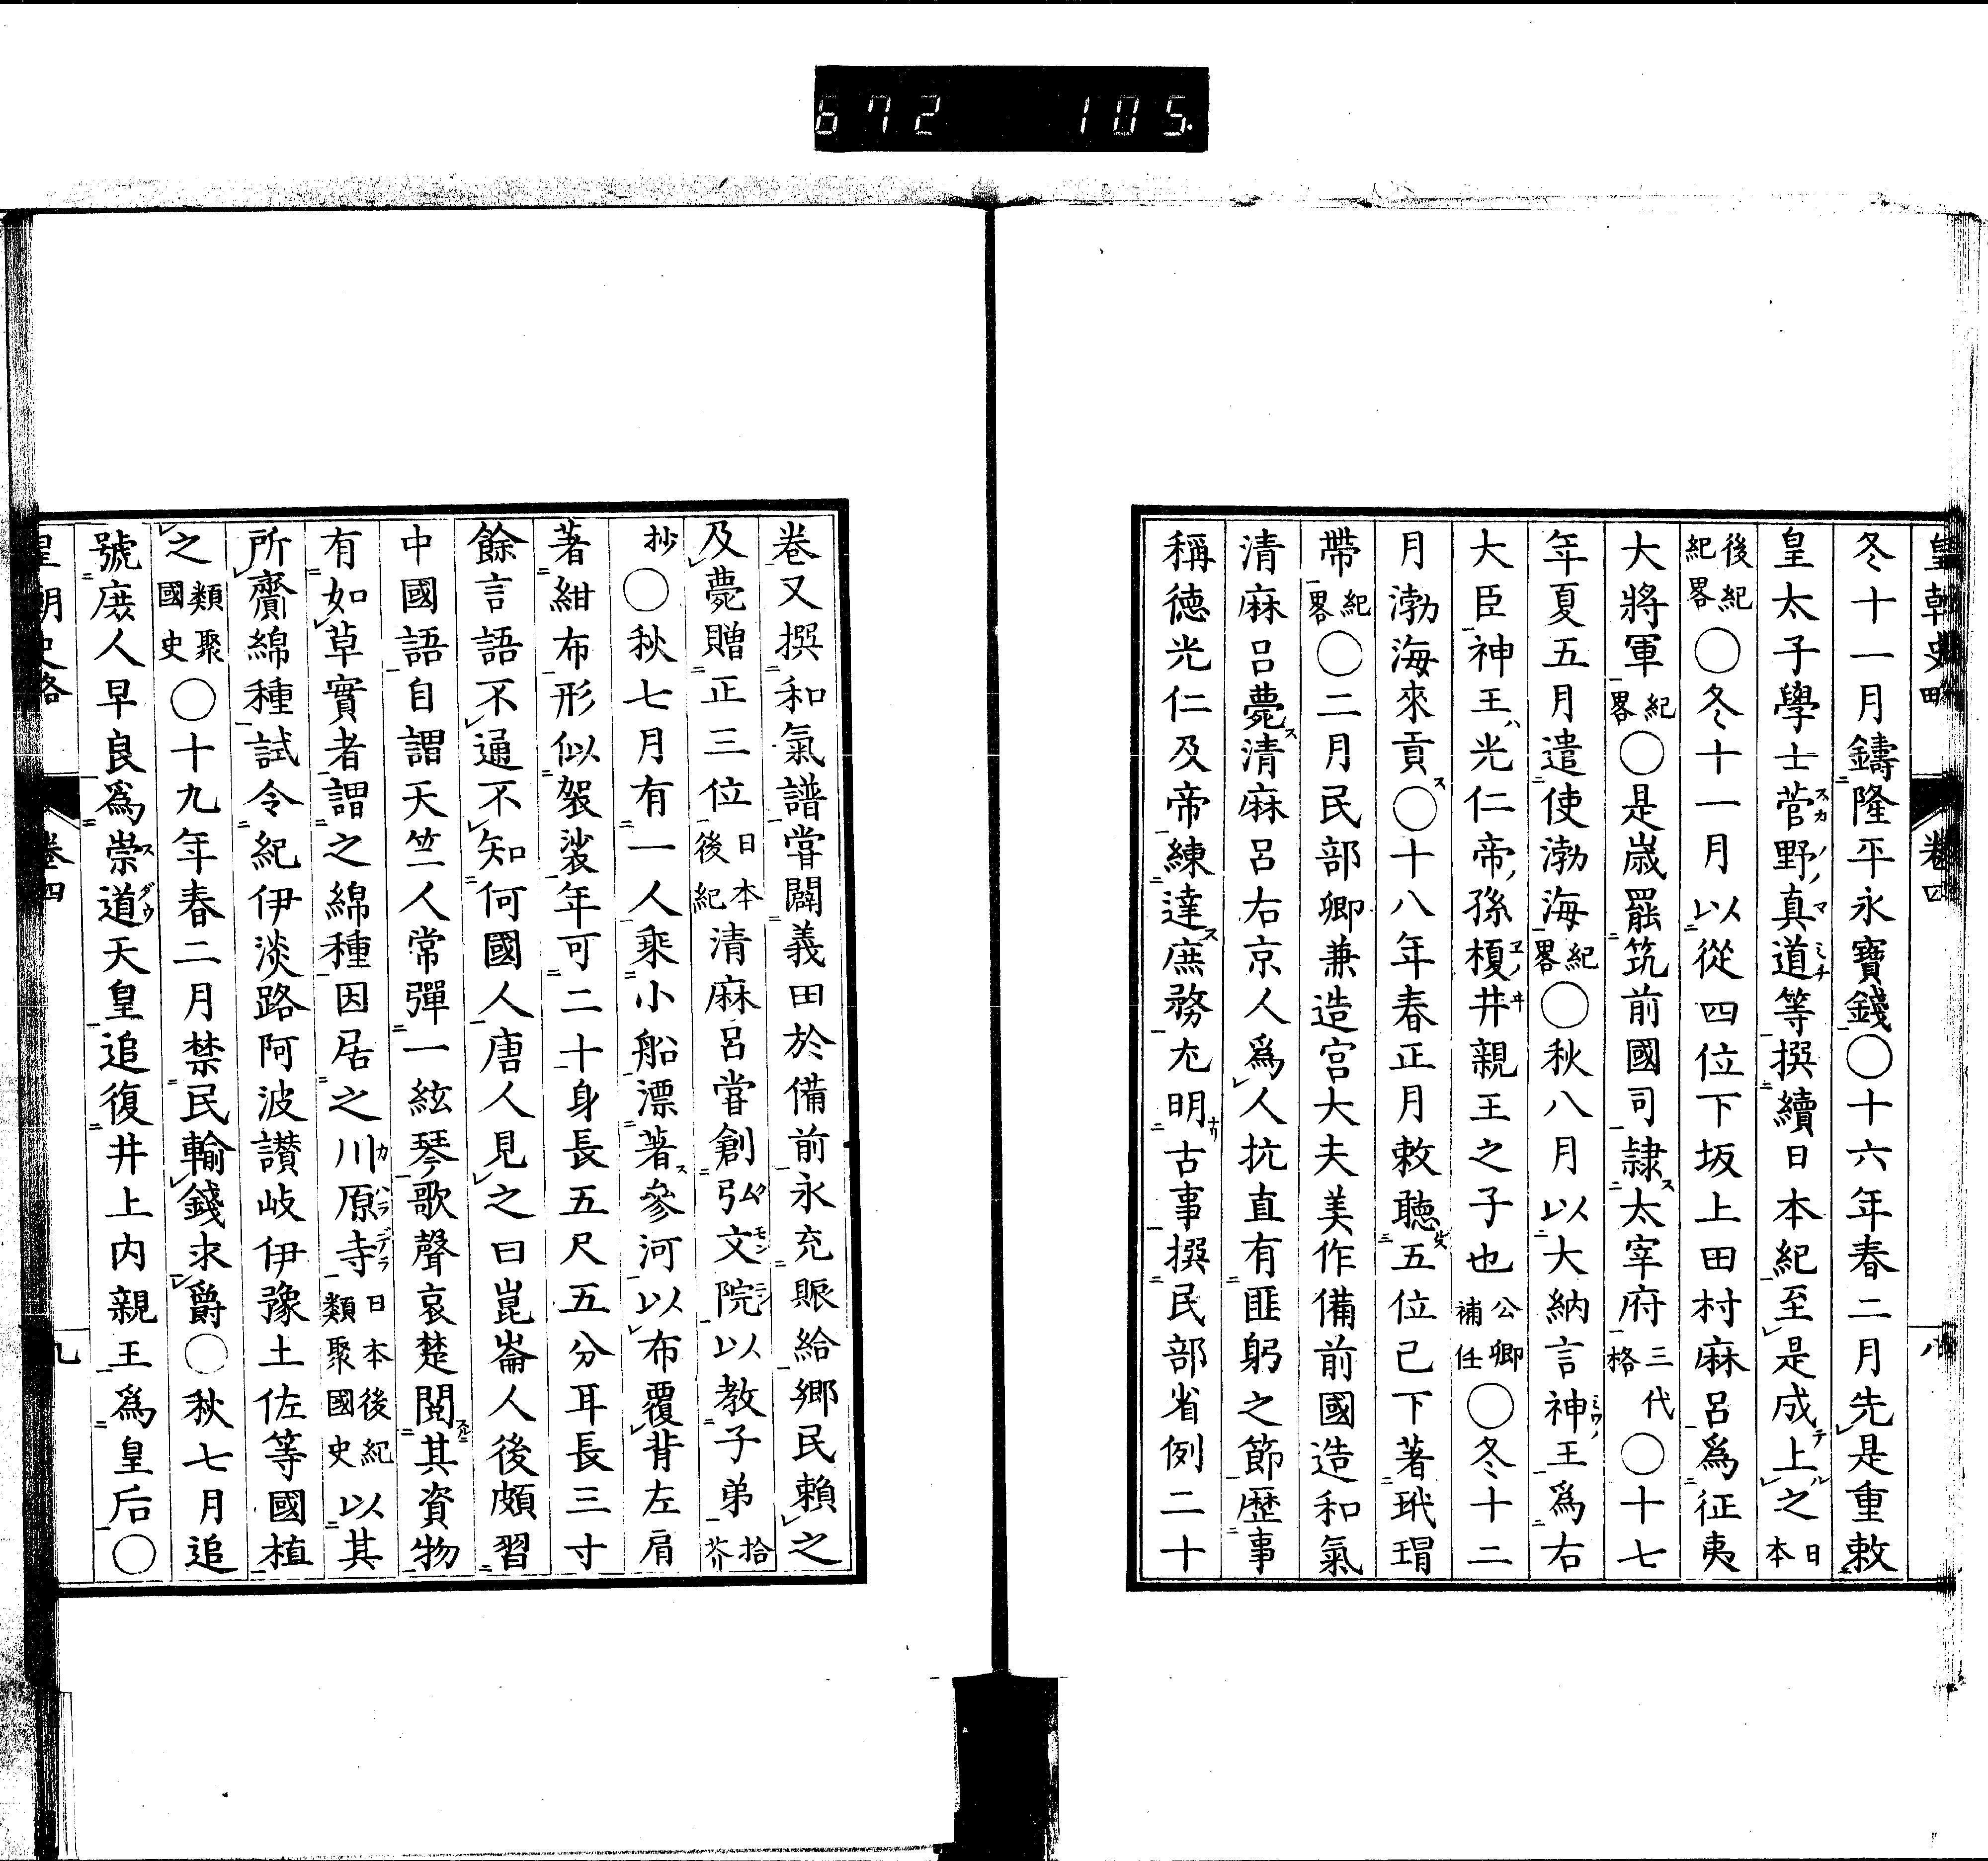 672 105.
皇朝史略 卷四 八
冬十一月鑄隆平永寶錢〇十六年春二月先是重敕
皇太子學士菅野真道等撰續日本紀至是成上之日本
後紀紀畧〇冬十一月以從四位下坂上田村麻呂爲征夷
大將軍紀畧〇是歲罷筑前國司隷太宰府三代格〇十七
年夏五月遣使渤海紀畧〇秋八月以大納言神王爲右
大臣神王光仁帝孫榎井親王之子也公卿補任〇冬十二
月渤海來貢〇十八年春正月敕聽五位已下著玳瑁
帶紀畧〇二月民部卿兼造宮大夫美作備前國造和氣
清麻呂薨清麻呂右京人爲人抗直有匪躬之節歷事
稱德光仁及帝練達庶務尤明古事撰民部省例二十
卷又撰和氣譜嘗闢義田於備前永充賑給鄉民賴之
及薨贈正三位日本後紀清麻呂嘗創弘文院以教子弟拾芥
抄〇秋七月有一人乘小船漂著參河以布覆背左肩
著紺布形似袈裟年可二十身長五尺五分耳長三寸
餘言語不通不知何國人唐人見之曰崑崙人後頗習
中國語自謂天竺人常彈一絃琴歌聲哀楚閱其資物
有如草實者謂之綿種因居之川原寺日本後紀類聚國史以其
所齎綿種試令紀伊淡路阿波讃岐伊豫土佐等國植
之類聚國史〇十九年春二月禁民輸錢求爵〇秋七月追
號廢人早良爲崇道天皇追復井上内親王爲皇后〇
皇朝史略 卷四 九